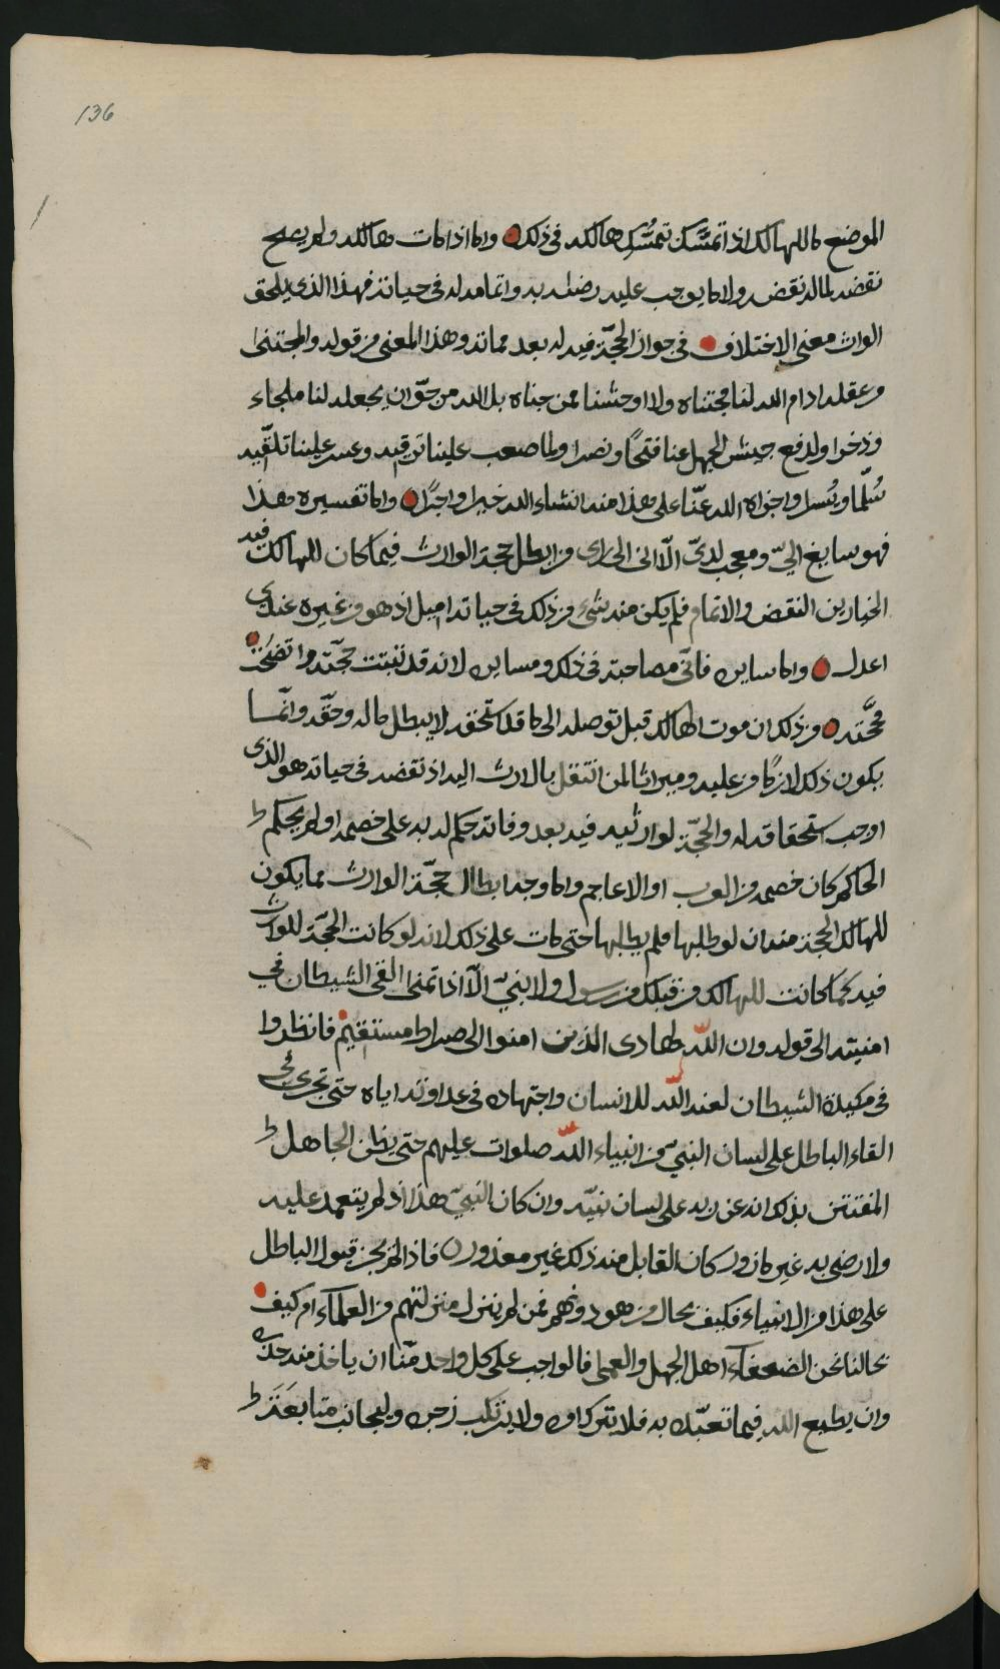 136
الموضع ما للهالك اذا تمسّك تمسُّك هالكه فى ذلك واما اذا مات هالكه ولم يصح
نقضه لما له نقضه ولا ما يوجب عليه رضاه به واتمامه له فى حياته فهذا الذى يلحق
الوارث معنى الاختلاف فى جواز الحجّة فيه له بعد مماته وهذا المعنى من قوله والمجتنى
من عقله ادام الله لنا مجتناه ولا اوحشنا من جناه بل الله من حقّ ان يجعله لنا ملجاء
وذخرا ولدفع جيش الجهل عنا فتحًا ونصرا ولما صعب علينا ترقيه وعسر علينا تلقّيه
سُلّما ويُسرا وجزاه الله عنّا على هذا منه انشاء الله خيرا واجرًا واما تفسيره هذا
فهو سايغ اليّ ومعجب لديّ الّا انى ارى من ابطل حجة الوارث فيما كان للهالك فيه
الخيار بين النقض والاتمام فلم يكن منه شىء من ذلك فى حياته اميل اذ هو من غيره عندى
اعدل واما سايره فانّى مصاحبه فى ذلك ومسايره لانه قد ثبتت حجّته واتضحت
محجّته ومن ذلك ان موت الهالك قبل توصله الى ما قد استحقه لا يبطل ماله وحقّه وانّما
يكون ذلك لازمًا من عليه وميراثا لمن انتقل بالارث اليه اذ نقضه فى حياته هو الذى
اوجب استحقاقه له والحجّة لوارثه فيه بعد وفاته حكم له به على خصمه او لم يحكم
الحاكم كان خصمه من العرب او الاعاجم واما وجه ابطال حجّة الوارث مما يكون
للهالك الحجة منه ان لو طلبها فلم يطلبها حتى مات على ذلك لانه لو كانت الحجّة للوارث
فيه كما كانت للهالك من قبلك من رسول ولا نبيّ الّا اذا تمنى القى الشيطان في
امنيته الى قوله وان الله لهادى الذين امنوا الى صراط مستقيم فانظروا
فى مكيدة الشيطان لعنه الله للانسان واجتهاده فى عداوته اياه حتى تجرى في
القاء الباطل على لسان النبيّ من انبياء الله صلوات عليهم حتى يظن الجاهل
المفتتن بذلك انه عن ربه على لسان نبيّه وان كان النبيّ هذا اذ لم يتعمد عليه
ولا رضى به غير مازور كان القابل منه ذلك غير معذور فاذا لم يجز قبول الباطل
على هذا من الانبياء فكيف بحال من هو دونهم ممن لم ينزل منزلتهم من العلماء ام كيف
بحالنا نحن الضعفاء اهل الجهل والعمى فالواجب على كل واحد منّا ان ياخذ منه حذره
وان يطيع الله فيما تعبّده به فلا يترك امره ولا يرتكب زجره وليجانب متابعَة